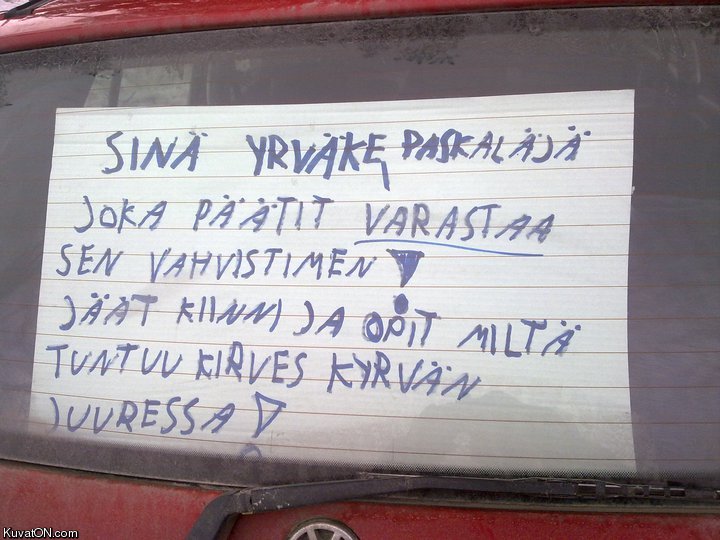 SINÄ YRVÄKE, PASKALÄJÄ
JOKA PÄÄTIT VARASTAA
SEN VAHVISTIMEN!
JÄÄT KIINNI JA OPIT MILTÄ
TUNTUU KIRVES KYRVÄN
JUURESSA!
KuvatON.com